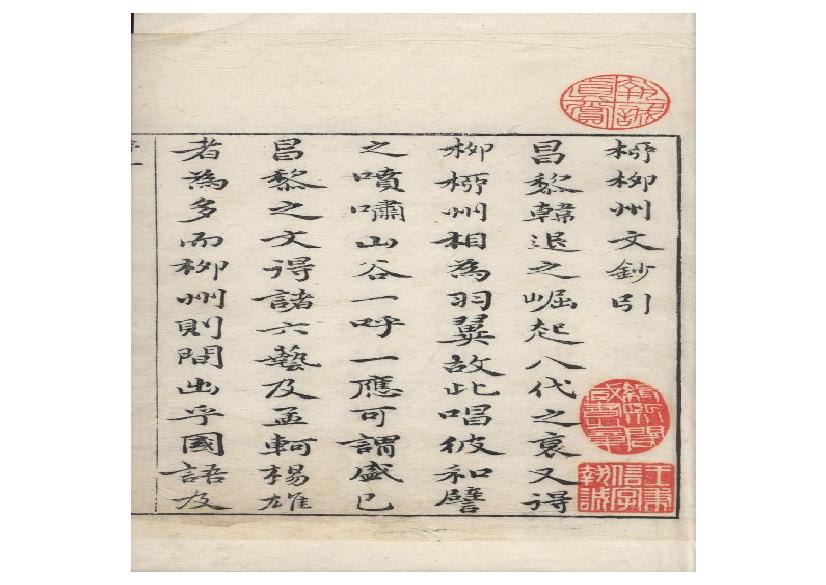 桺柳州文鈔引
昌黎韓退之崛起八代之衰又得
柳桺州相為羽翼故此唱彼和譬
之噴嘯山谷一呼一應可謂盛已
昌黎之文得諸六藝及孟軻楊雄
者為多而柳州則間出乎國語及